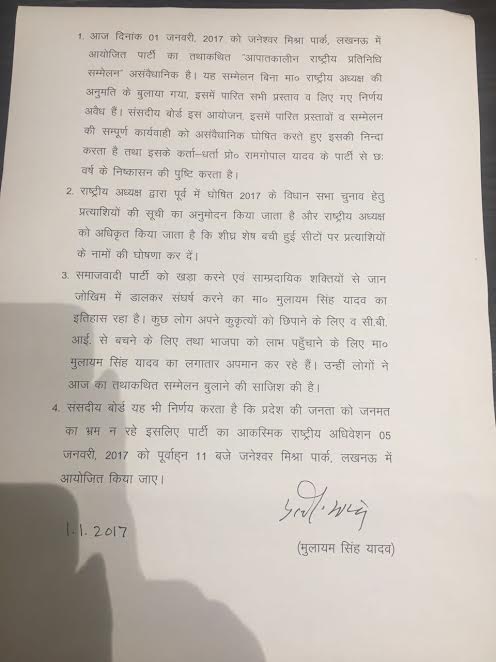 1. आज दिनांक 01 जनवरी, 2017 को जनेश्वर मिश्रा पार्क, लखनऊ में
आयोजित पार्टी का तथाकथित "आपातकालीन राष्ट्रीय प्रतिनिधि
सम्मेलन" असंवैधानिक है। यह सम्मेलन बिना मा० राष्ट्रीय अध्यक्ष की
अनुमति के बुलाया गया, इसमें पारित सभी प्रस्ताव व लिए गए निर्णय
अवैध हैं। संसदीय बोर्ड इस आयोजन, इसमें पारित प्रस्तावों व सम्मेलन
की सम्पूर्ण कार्यवाही को असंवैधानिक घोषित करते हुए इसकी निन्दा
करता है तथा इसके कर्ता–धर्ता प्रो० रामगोपाल यादव के पार्टी से छः
वर्ष के निष्कासन की पुष्टि करता है।
2. राष्ट्रीय अध्यक्ष द्वारा पूर्व में घोषित 2017 के विधान सभा चुनाव हेतु
प्रत्याशियों की सूची का अनुमोदन किया जाता है और राष्ट्रीय अध्यक्ष
को अधिकृत किया जाता है कि शीघ्र शेष बची हुई सीटों पर प्रत्याशियों
के नामों की घोषणा कर दें।
3. समाजवादी पार्टी को खड़ा करने एवं साम्प्रदायिक शक्तियों से जान
जोखिम में डालकर संघर्ष करने का मा० मुलायम सिंह यादव का
इतिहास रहा है। कुछ लोग अपने कुकृत्यों को छिपाने के लिए व सी.बी.
आई. से बचने के लिए तथा भाजपा को लाभ पहुँचाने के लिए मा०
मुलायम सिंह यादव का लगातार अपमान कर रहे हैं। उन्हीं लोगों ने
आज का तथाकथित सम्मेलन बुलाने की साजिश की है।
4. संसदीय बोर्ड यह भी निर्णय करता है कि प्रदेश की जनता को जनमत
का भ्रम न रहे इसलिए पार्टी का आकस्मिक राष्ट्रीय अधिवेशन 05
जनवरी, 2017 को पूर्वाह्न 11 बजे जनेश्वर मिश्रा पार्क, लखनऊ में
आयोजित किया जाए।
1.1.2017
(मुलायम सिंह यादव)